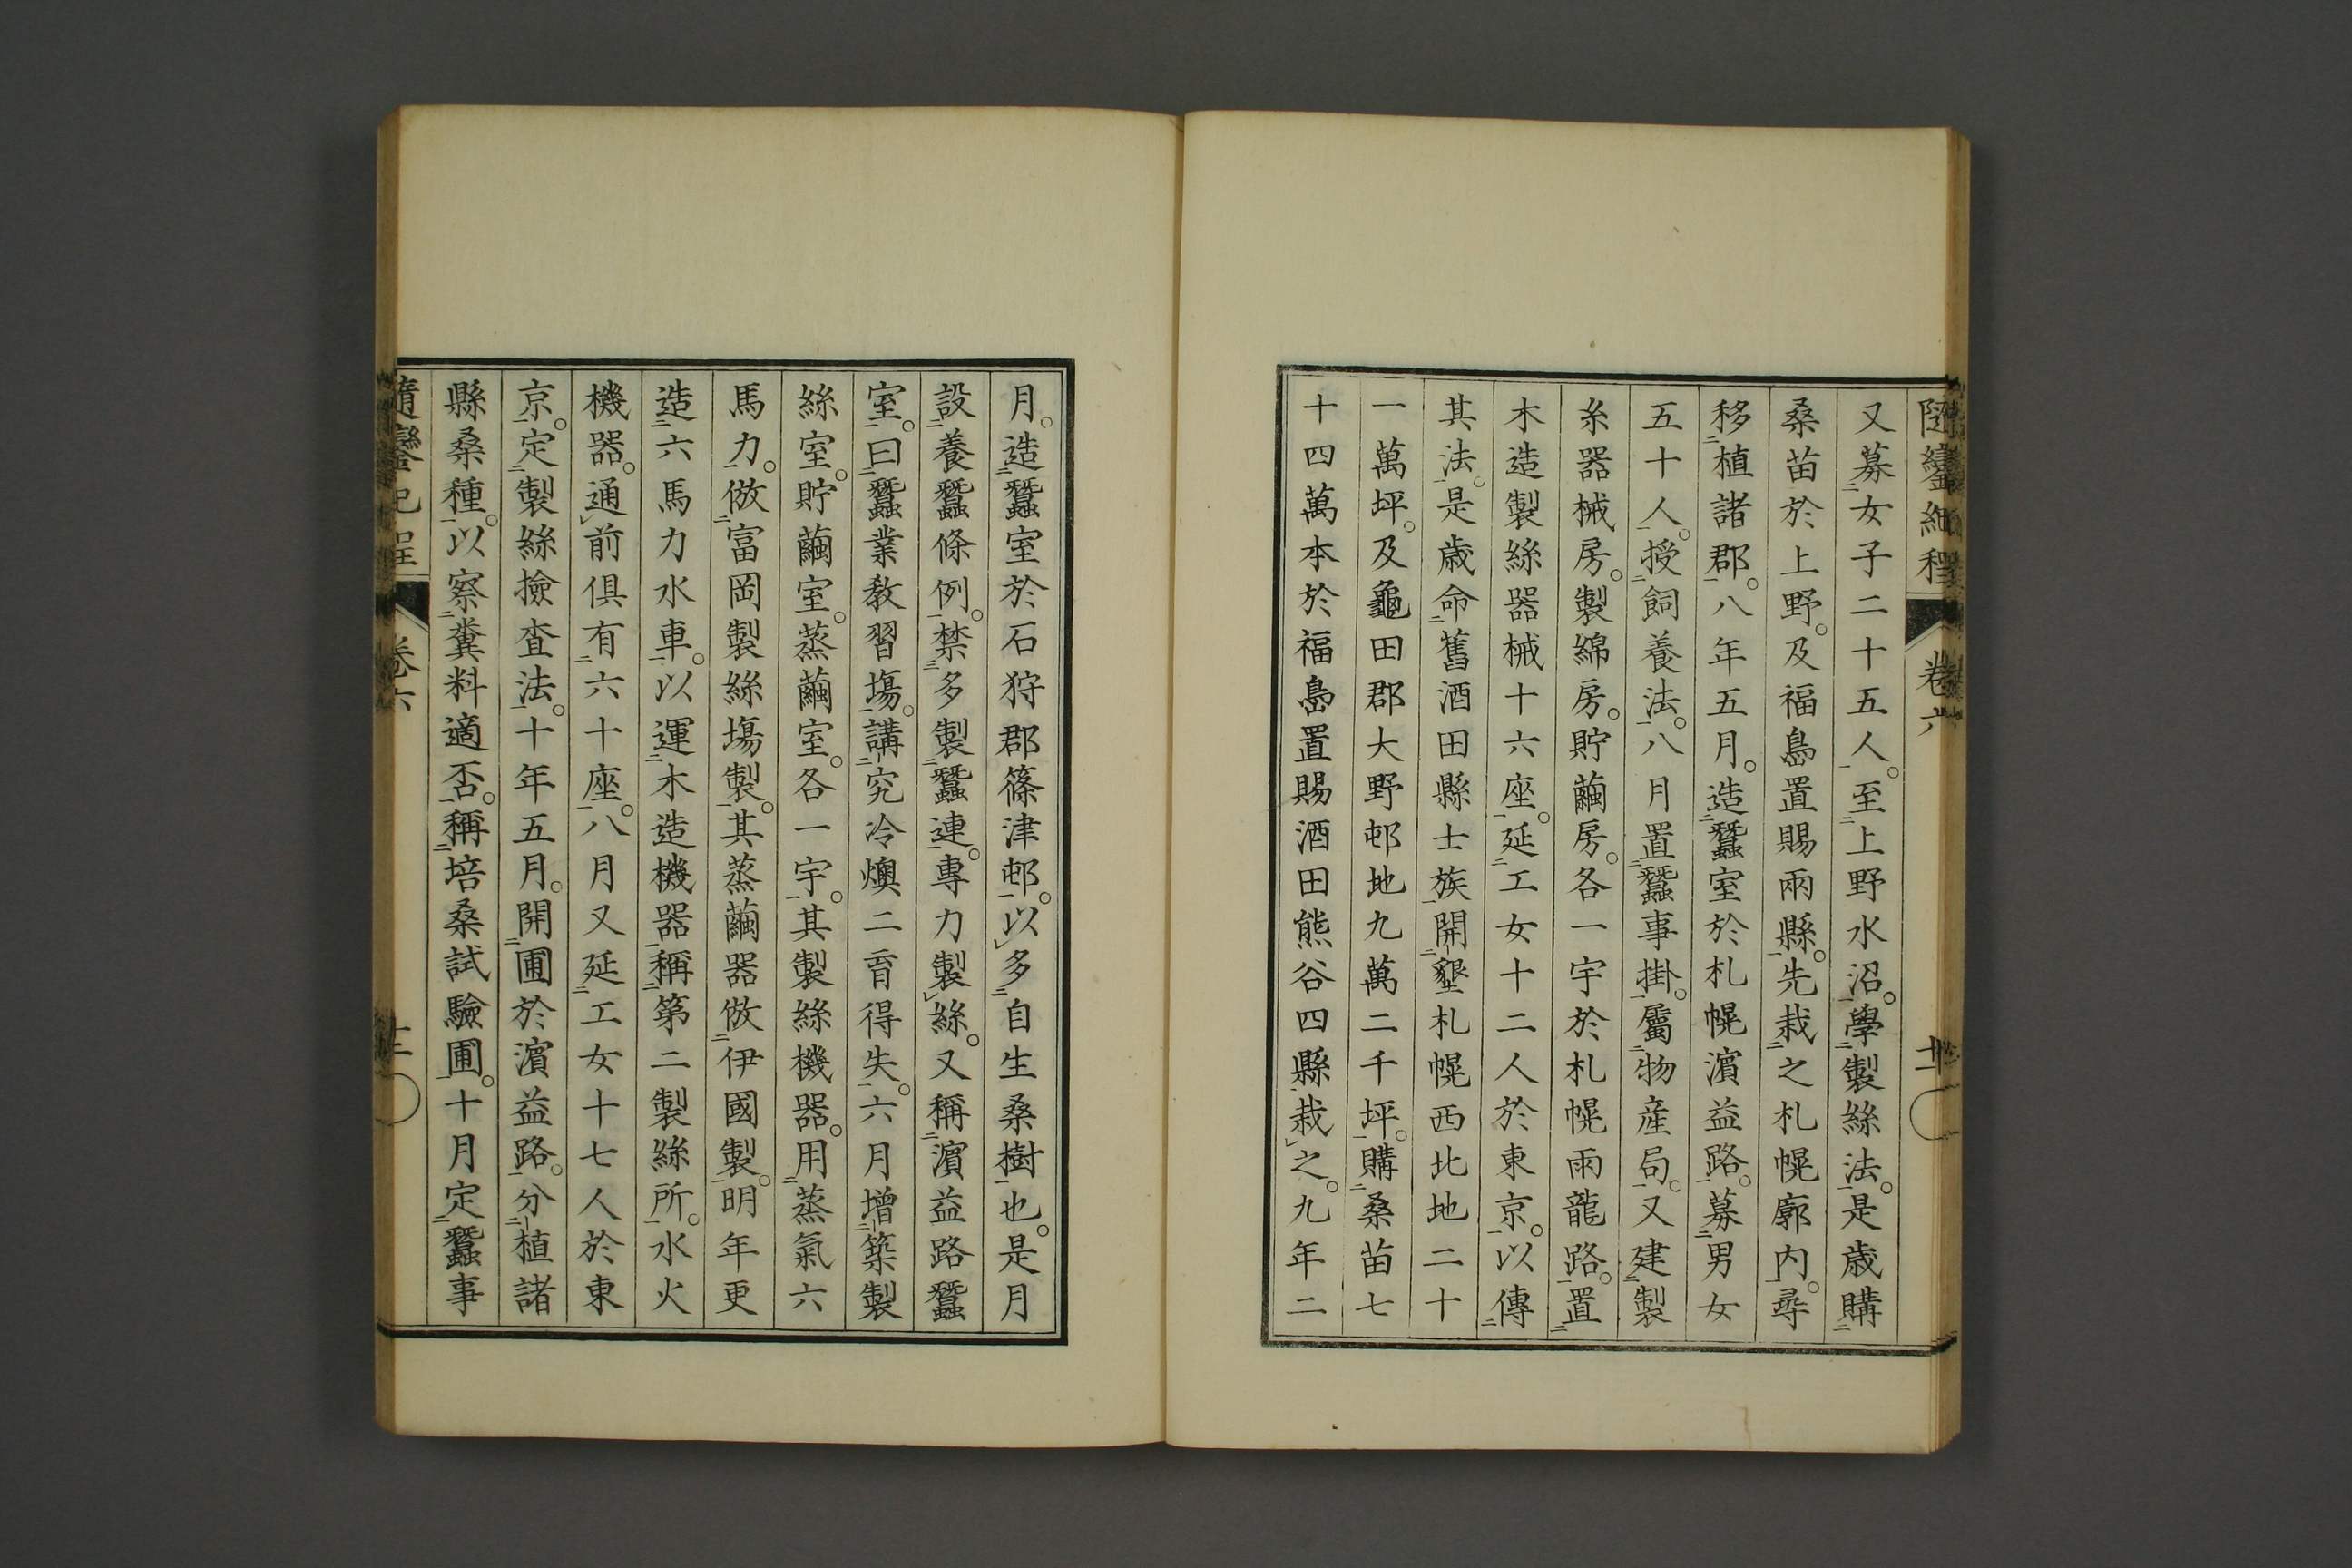 隨鑾紀程 卷六
又募女子二十五人。至上野水沼。學製絲法。是歲購
桑苗於上野。及福島置賜兩縣。先栽之札幌廓内。尋
移植諸郡。八年五月。造蠶室於札幌濱益路。募男女
五十人。授飼養法。八月置蠶事掛。屬物産局。又建製
糸器械房。製綿房。貯繭房。各一宇於札幌雨龍路。置
木造製絲器械十六座。延工女十二人於東京。以傳
其法。是歲命舊酒田縣士族。開墾札幌西北地二十
一萬坪。及龜田郡大野邨地九萬二千坪。購桑苗七
十四萬本於福島置賜酒田熊谷四縣。栽之。九年二
月。造蠶室於石狩郡篠津邨。以多自生桑樹也。是月
設養蠶條例。禁多製蠶連。專力製絲。又稱濱益路蠶
室。曰蠶業教習場。講究冷燠二育得失。六月增築製
絲室。貯繭室。蒸繭室。各一宇。其製絲機器。用蒸氣六
馬力。倣富岡製絲場製。其蒸繭器倣伊國製。明年更
造六馬力水車。以運木造機器。稱第二製絲所。水火
機器。通前俱有六十座。八月又延工女十七人於東
京。定製絲撿査法。十年五月。開圃於濱益路。分植諸
縣桑種。以察糞料適否。稱培桑試驗圃。十月定蠶事
隨鑾紀程 卷六